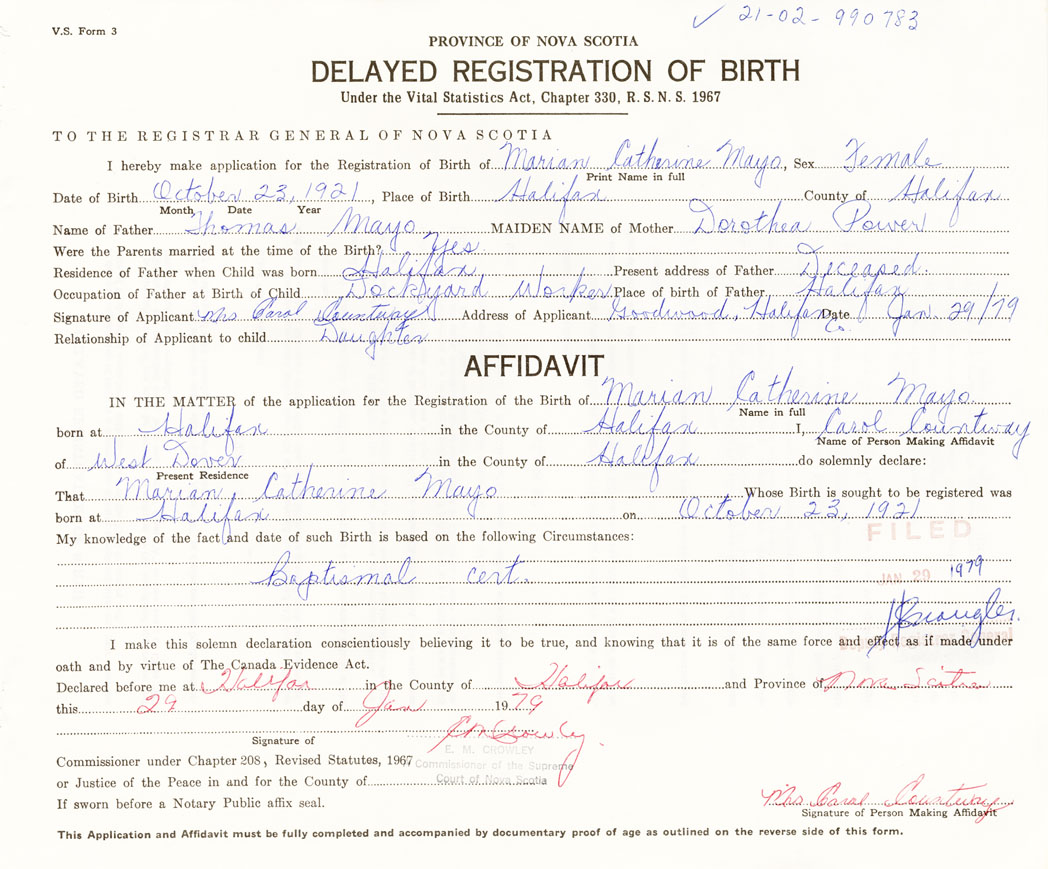 ✓ 21-02-990783
V.S. Form 3
PROVINCE OF NOVA SCOTIA
DELAYED REGISTRATION OF BIRTH
Under the Vital Statistics Act, Chapter 330, R. S. N. S. 1967
TO THE REGISTRAR GENERAL OF NOVA SCOTIA
I hereby make application for the Registration of Birth of Marian Catherine Mayo, Sex Female
Print Name in full
Date of Birth October 23, 1921, Place of Birth Halifax County of Halifax
Month Date Year
Name of Father Thomas Mayo MAIDEN NAME of Mother Dorothea Power
Were the Parents married at the time of the Birth? Yes
Residence of Father when Child was born Halifax Present address of Father Deceased.
Occupation of Father at Birth of Child Dockyard Worker Place of birth of Father Halifax
Signature of Applicant Mrs Carol Countway Address of Applicant Goodwood, Halifax Co. Date Jan 29/79
Relationship of Applicant to child Daughter
AFFIDAVIT
IN THE MATTER of the application for the Registration of the Birth of Marian Catherine Mayo
Name in full
born at Halifax in the County of Halifax I, Carol Countway
Name of Person Making Affidavit
of West Dover in the County of Halifax do solemnly declare:
Present Residence
That Marian Catherine Mayo Whose Birth is sought to be registered was
born at Halifax on October 23, 1921
My knowledge of the fact and date of such Birth is based on the following Circumstances:
FILED
Baptismal cert.
JAN 29 1979
I make this solemn declaration conscientiously believing it to be true, and knowing that it is of the same force and effect as if made under
oath and by virtue of The Canada Evidence Act.
Declared before me at Halifax in the County of Halifax and Province of Nova Scotia
this 29 day of Jan 1979
E M Crowley
Signature of
E. M. CROWLEY
Commissioner under Chapter 208, Revised Statutes, 1967 Commissioner of the Supreme
or Justice of the Peace in and for the County of Court of Nova Scotia
If sworn before a Notary Public affix seal.
Mrs Carol Countway
Signature of Person Making Affidavit
This Application and Affidavit must be fully completed and accompanied by documentary proof of age as outlined on the reverse side of this form.